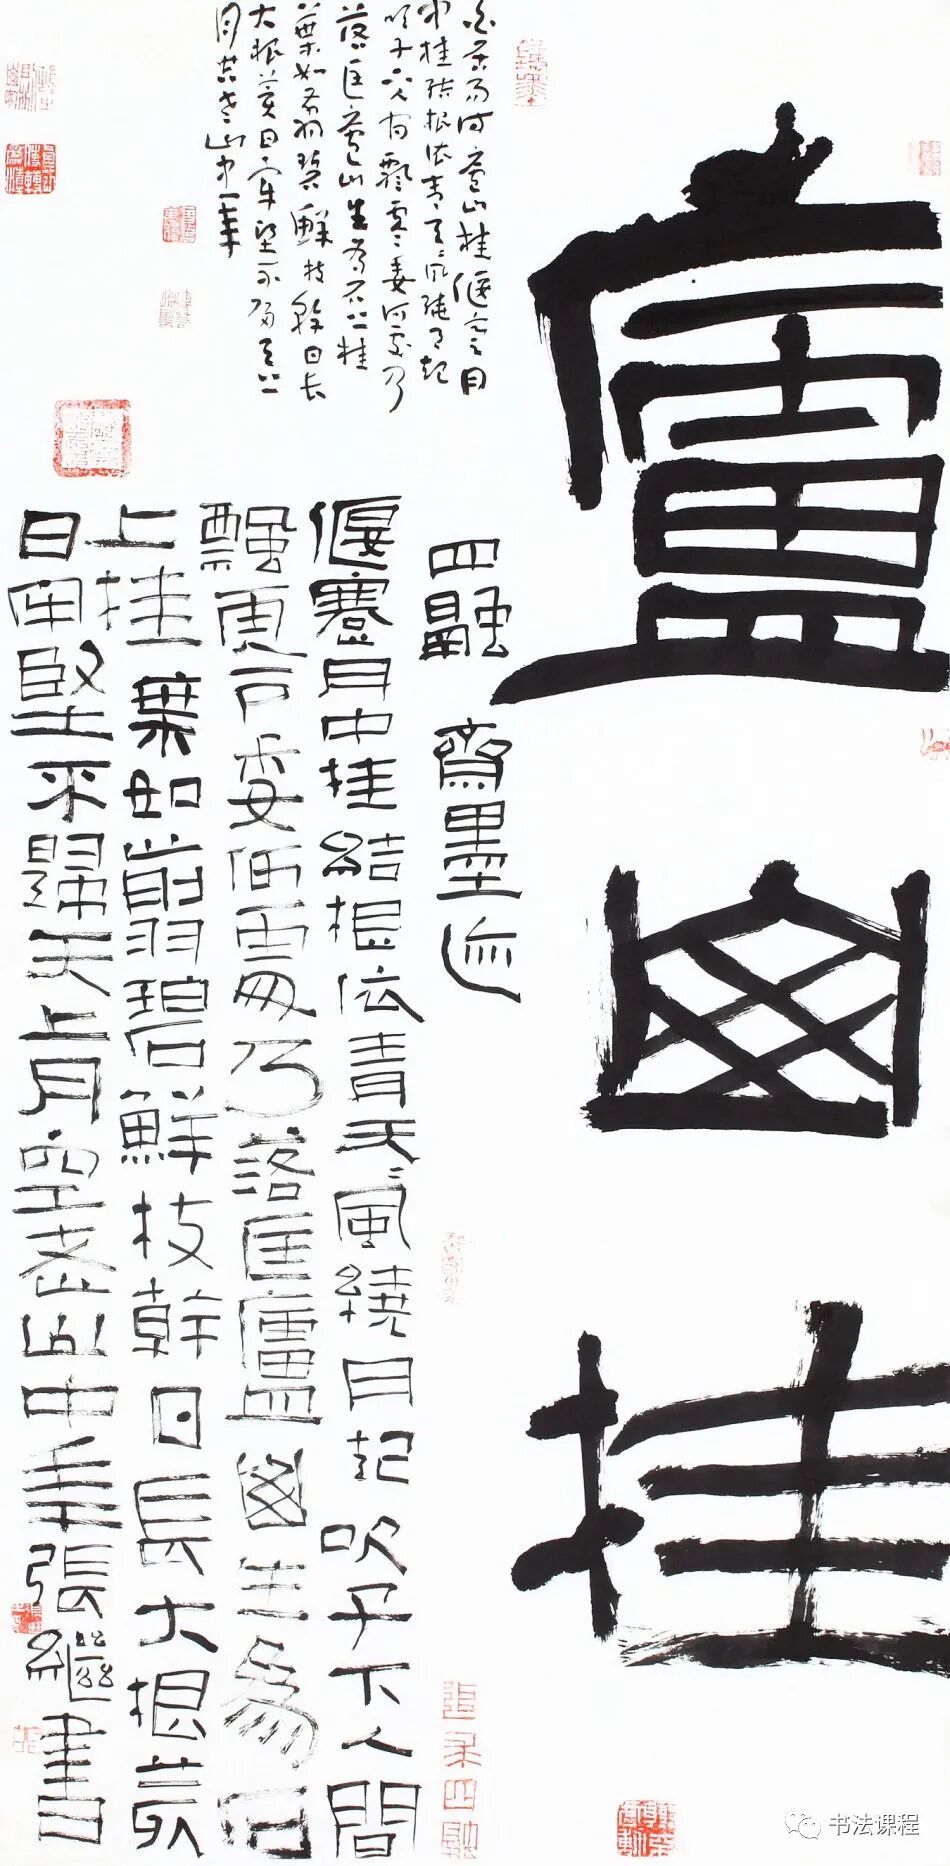 廬山桂
四融齋墨迹
白居易诗廬山桂偃蹇月
中桂結根依青天〻風繞月起
吹子下人間飄零委何處乃
落匡廬山生為石上桂
葉如翦碧鮮枝幹日長
大根荄日牢堅不歸天上
月空老山中年
偃蹇月中桂結根依青天〻風繞月起吹子下人間
飄零委何處乃落匡廬山生為石
上桂葉如翦碧鮮枝幹日長大根荄
日牢堅不歸天上月空老山中年張繼書
追求四融
书法课程